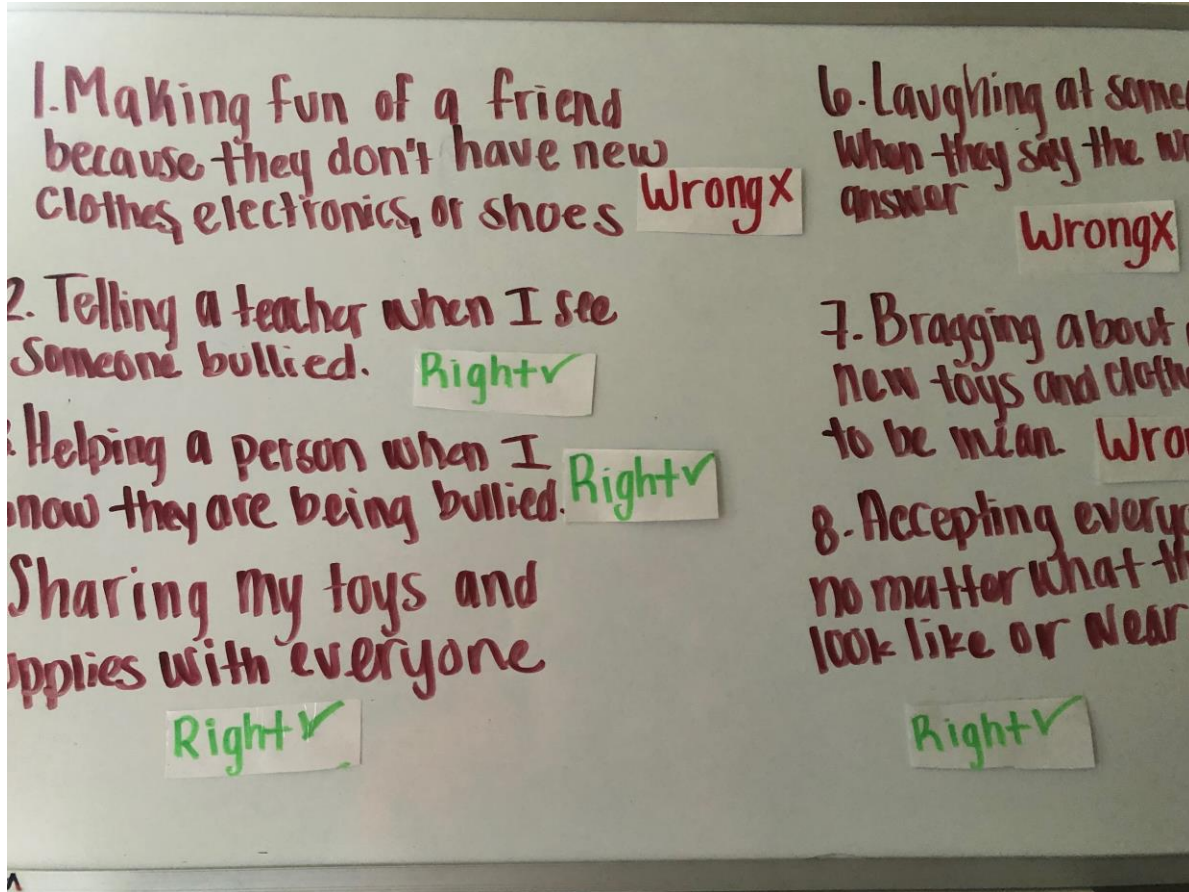 1. Making fun of a friend
because they don't have new
clothes, electronics, or shoes
Wrong X
2. Telling a teacher when I see
someone bullied.
Right ✓
Helping a person when I
they are being bullied.
Right ✓
Sharing my toys and
with everyone
Right ✓
6. Laughing at
when they say the
answer
Wrong X
7. Bragging about
new toys and
to be mean
8. Accepting
no matter what
look like or wear
Right ✓